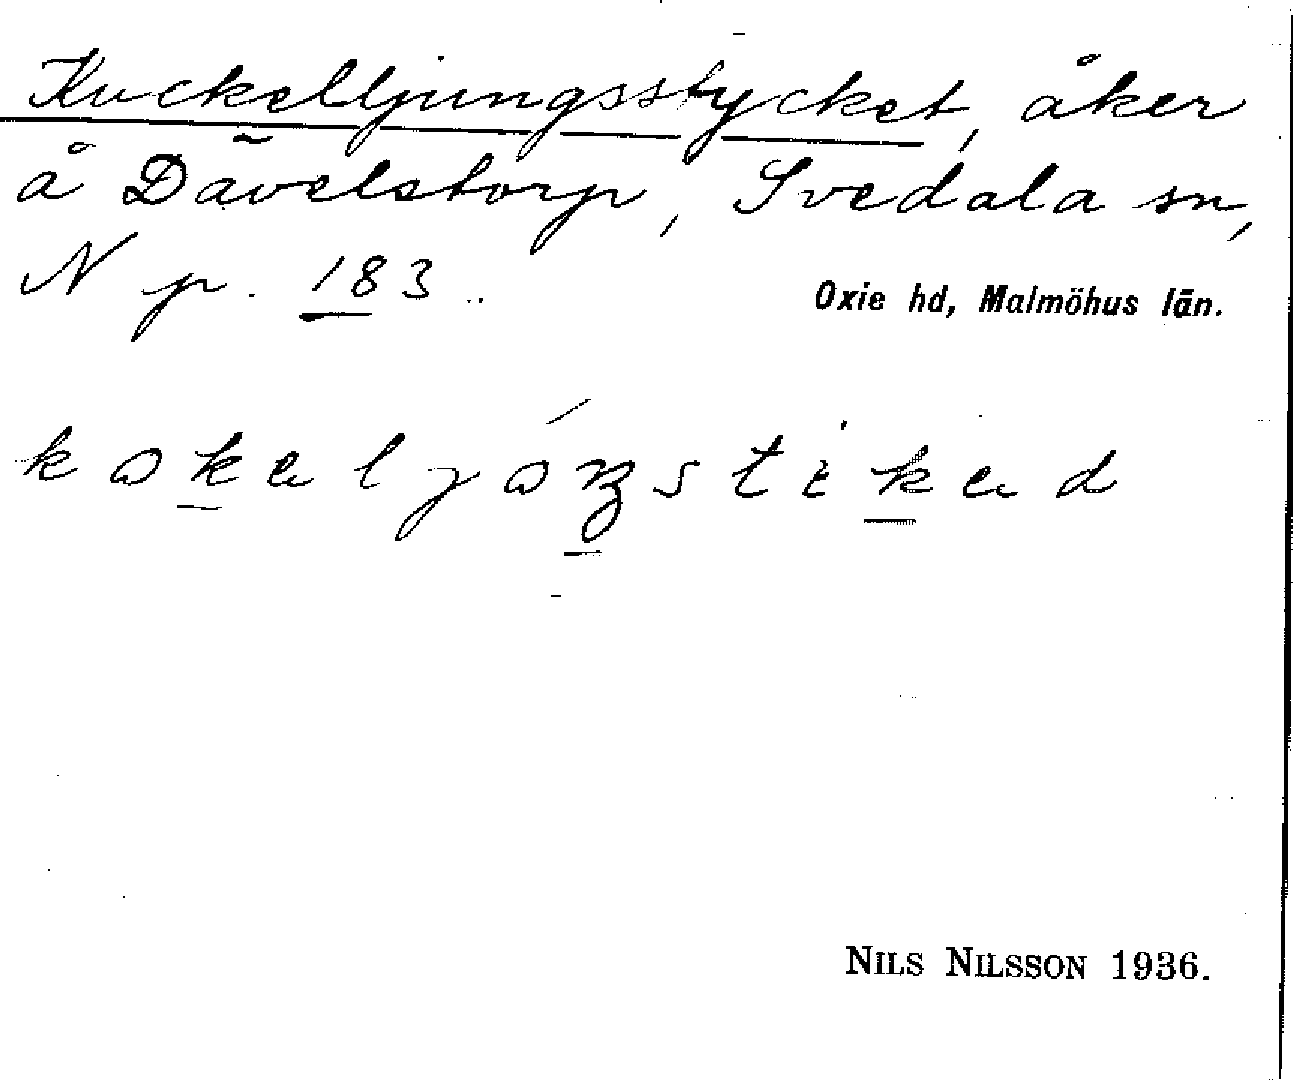 Kuckelljungsstycket, åker
å Dävelstorp, Svedala sn,
N p. 183.
Oxie hd, Malmöhus län.
NILS NILSSON 1936.